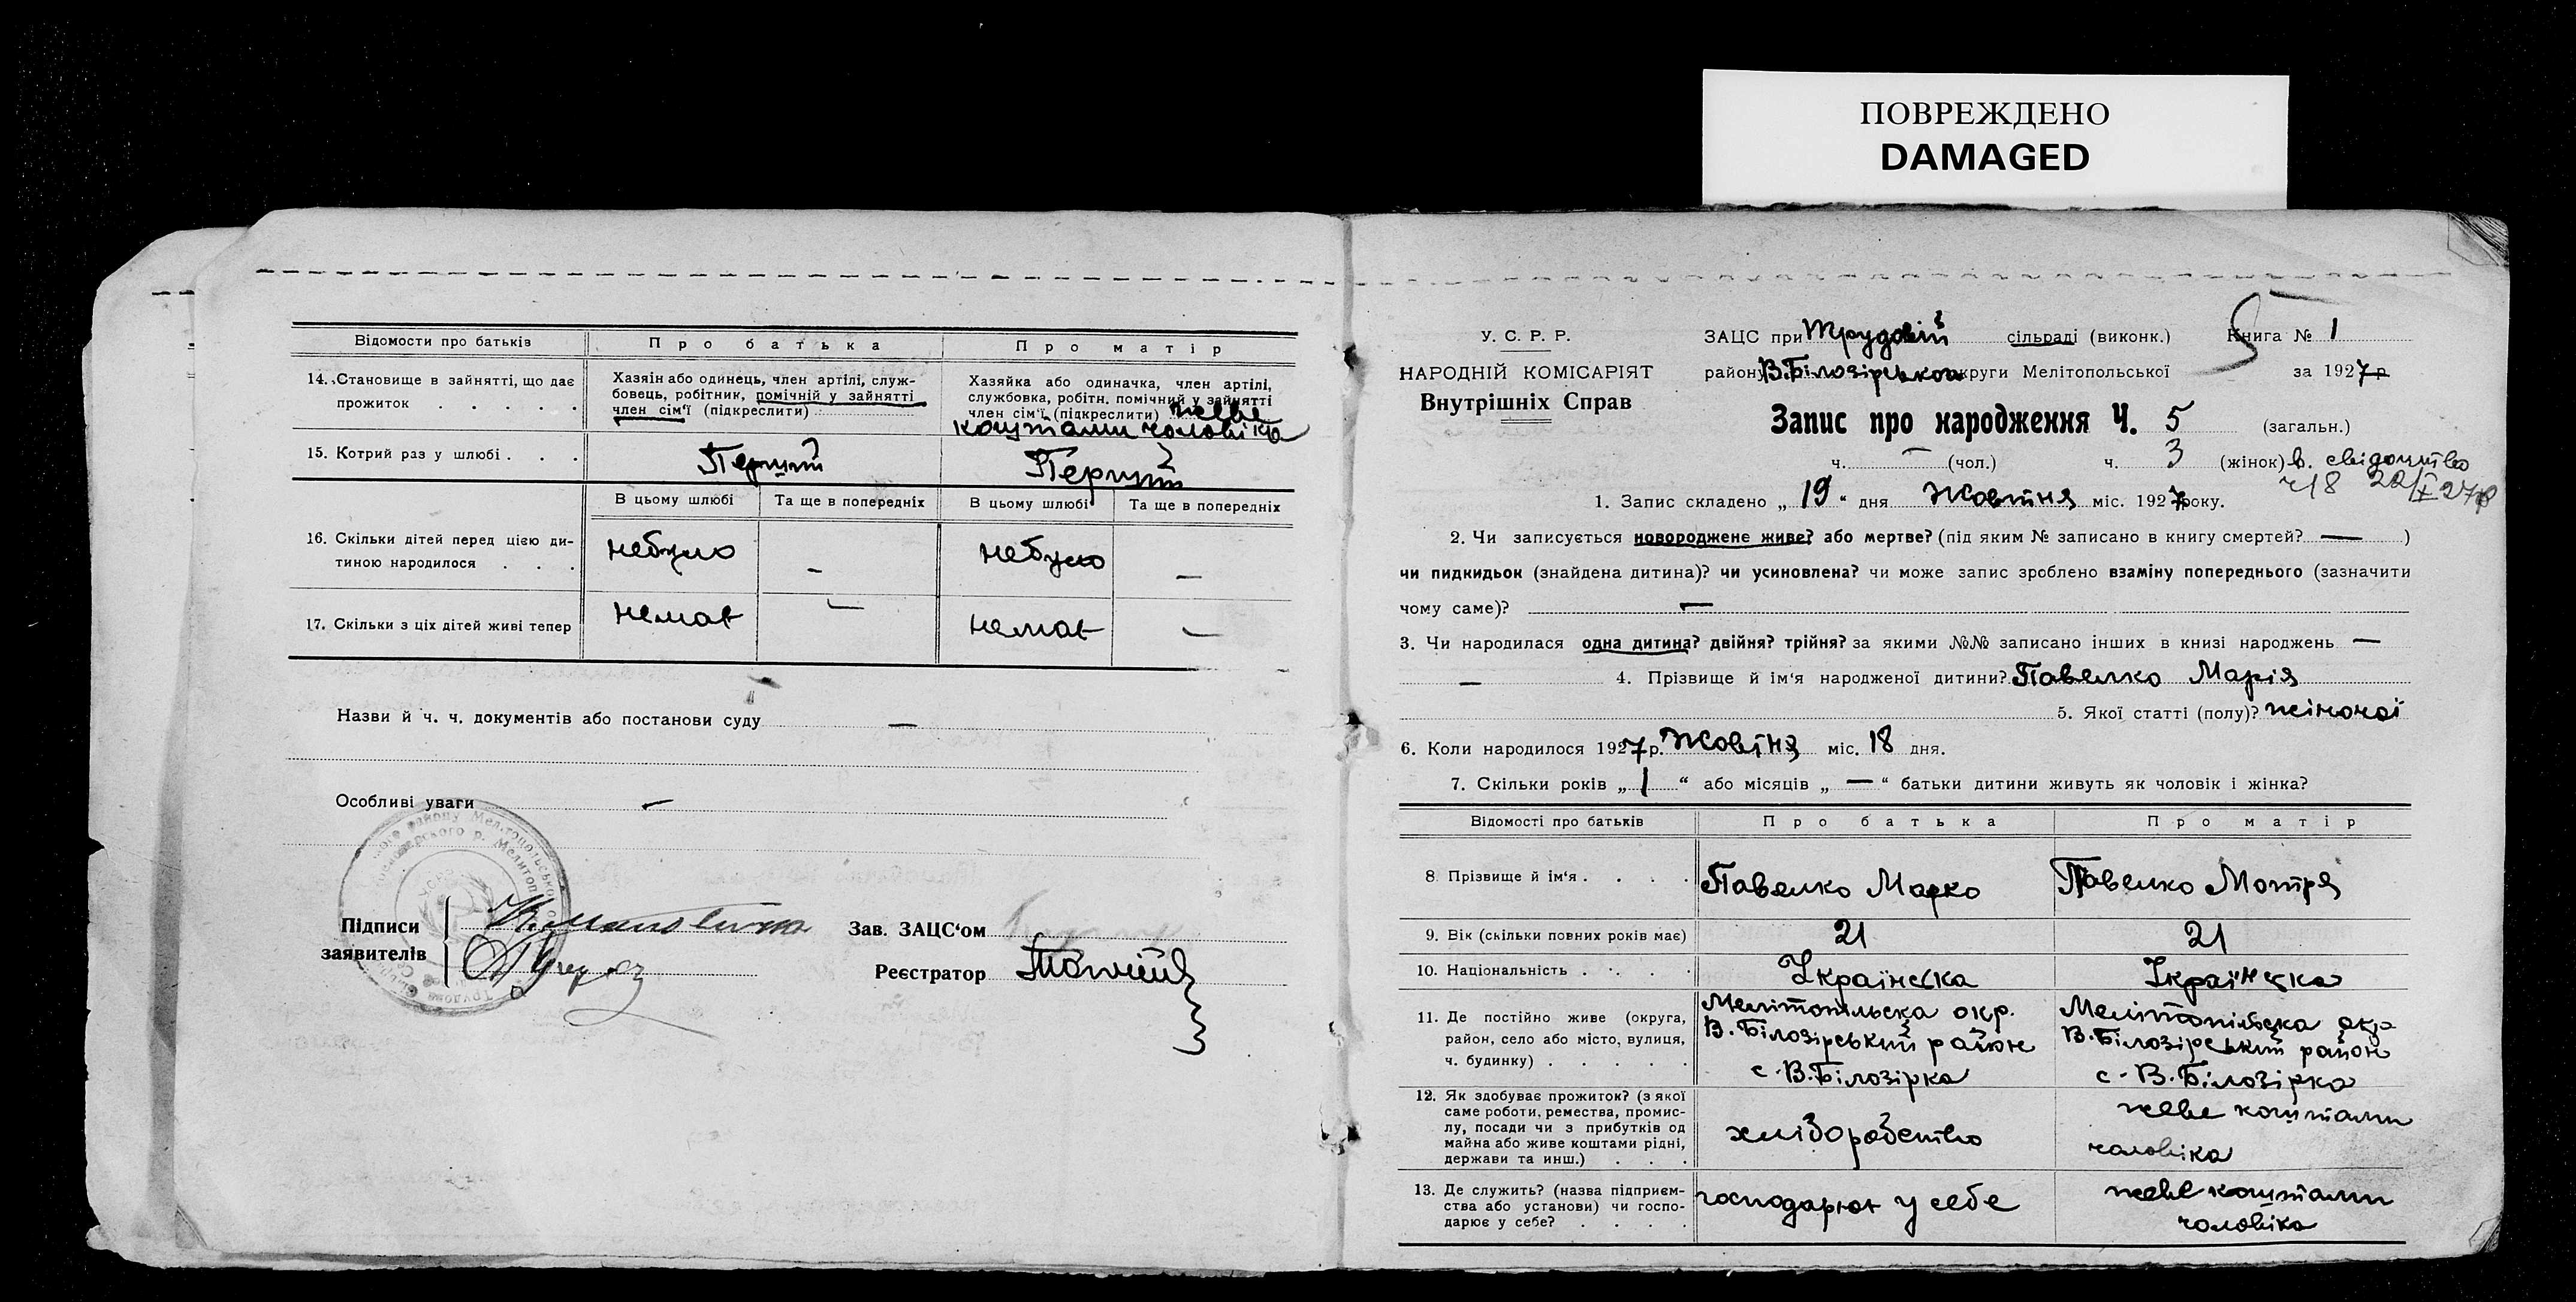 ПОВРЕЖДЕНО
DAMAGED
Відомости про батьків
Про батька
Про матір
14. Становище в зайнятті, що дає
прожиток . . . . .
Хазяін або одинець, член артілі, служ-
бовець, робітник, помічній у зайнятті
член сім'ї (підкреслити)
Хазяйка або одиначка, член артілі,
службовка, робітн. помічний у зайнятті
член сім'ї (підкреслити) живе
коштами чоловіка
15. Котрий раз у шлюбі . . .
Перший
Перший
В цьому шлюбі
Та ще в попередніх
В цьому шлюбі
Та ще в попередніх
16. Скільки дітей перед цією ди-
тиною народилося . . .
небуло
—
небуло
—
17. Скільки з ціх дітей живі тепер
немає
—
немає
—
Назви й ч. ч. документів або постанови суду —
Особливі уваги —
Підписи
заявителів
Зав. ЗАЦС'ом
Реєстратор
У. С. Р. Р.
НАРОДНІЙ КОМІСАРІЯТ
Внутрішніх Справ
ЗАЦС при Трудовій сільраді (виконк.)
Книга № 1
5
району В.Білозірської округи Мелітопольської
за 1927 р
Запис про народження Ч. 5 (загальн.)
ч. — (чол.) ч. 3 (жінок) в. свідоцтво
ч 18
1. Запис складено „ 19 " дня Жовтня міс. 1927 року.
2. Чи записується новороджене живе? або мертве? (під яким № записано в книгу смертей? — )
чи пидкидьок (знайдена дитина)? чи усиновлена? чи може запис зроблено взаміну попереднього (зазначити
чому саме)? —
3. Чи народилася одна дитина? двійня? трійня? за якими №№ записано інших в книзі народжень —
— 4. Прізвище й ім'я народженої дитини? Павелко Марія
5. Якої статті (полу)? жіночої
6. Коли народилося 1927 р. Жовтня міс. 18 дня.
7. Скільки років „ 1 “ або місяців „ — “ батьки дитини живуть як чоловік і жінка?
Відомості про батьків
Про батька
Про матір
8. Прізвище й ім'я . . . .
Павелко Марко
Павелко Мотря
9. Вік (скільки повних років має)
21
21
10. Національність . . . .
Українська
Українська
11. Де постійно живе (округа,
район, село або місто, вулиця,
ч. будинку) . . . . .
Мелітопільска окр.
В.Білозірський район
с. В.Білозірка
Мелітопільска окр
В.Білозірський район
с. В.Білозірка
12. Як здобуває прожиток? (з якої
саме роботи, ремества, промис-
лу, посади чи з прибутків од
майна або живе коштами рідні,
держави та инш.) . . .
хліборобство
живе коштами
чоловіка
13. Де служить? (назва підприєм-
ства або установи) чи госпо-
дарює у себе? . . . .
господарює у себе
живе коштами
чоловіка